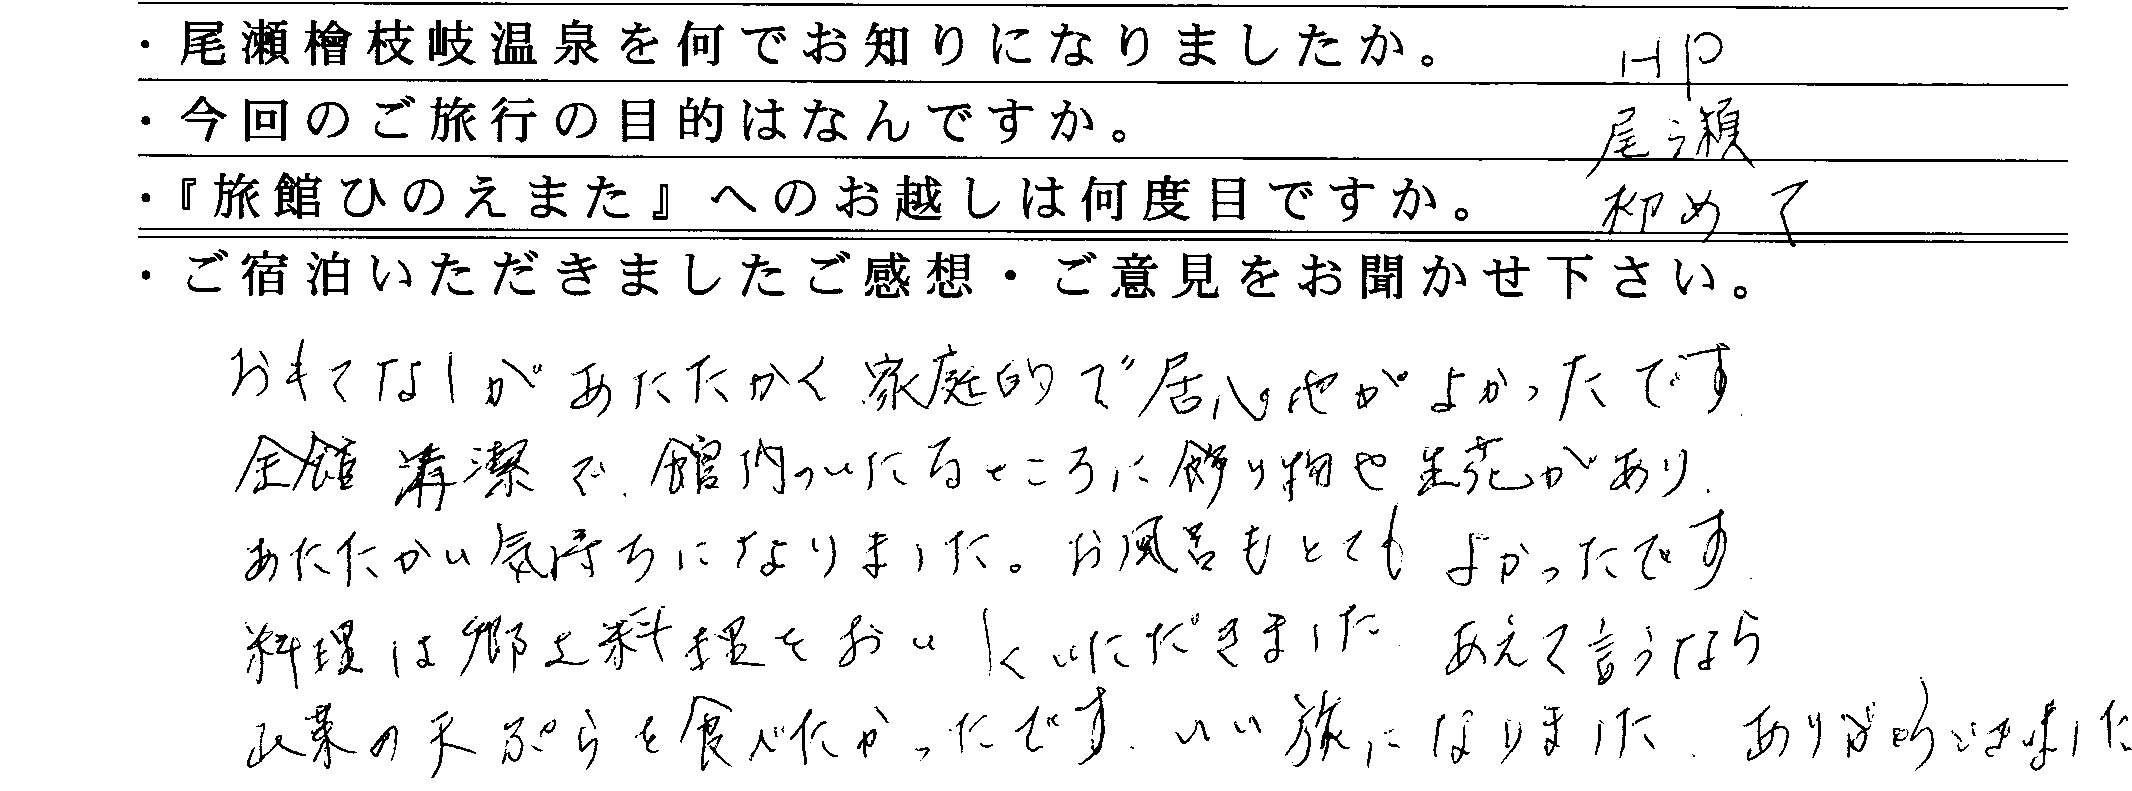 ・尾瀬檜枝岐温泉を何でお知りになりましたか。 HP
・今回のご旅行の目的はなんですか。 尾瀬
・『旅館ひのえまた』へのお越しは何度目ですか。 初めて
・ご宿泊いただきましたご感想・ご意見をお聞かせ下さい。
おもてなしがあたたかく家庭的で居心地がよかったです.
全館清潔で、館内のいたるところに飾り物や生花があり、
あたたかい気持ちになりました。お風呂もとてもよかったです.
料理は郷土料理をおいしくいただきました. あえて言うなら
山菜の天ぷらを食べたかったです. いい旅になりました. ありがとうございました